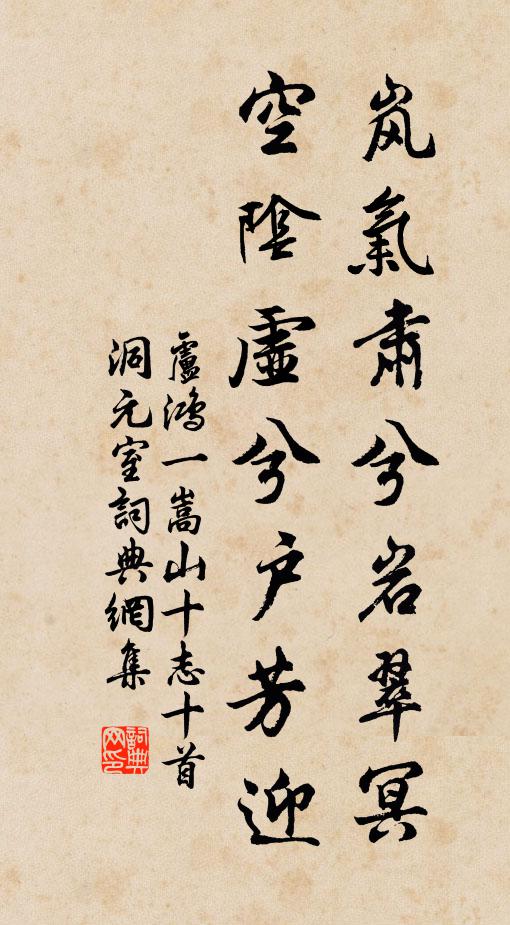 岚氣肅兮岩翠冥
空陰虛兮户芳迎
盧鴻一嵩山十志十首
洞元室詞典網集
詞典网印